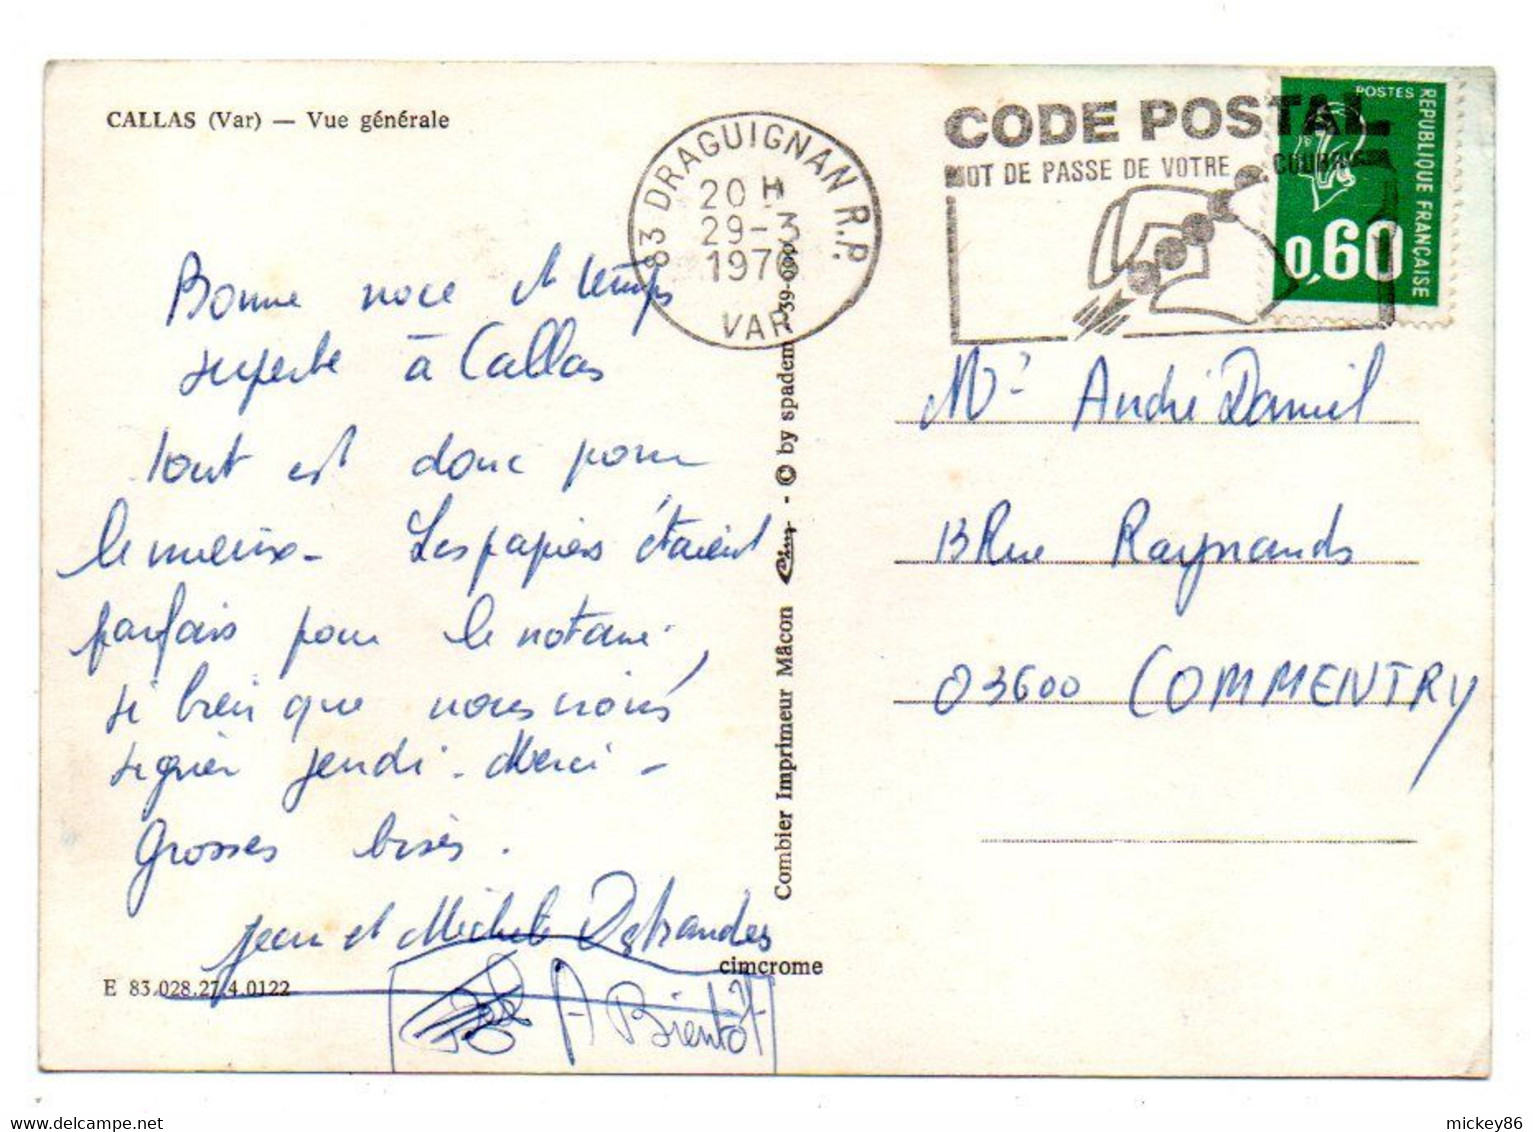 CALLAS (Var) — Vue générale
83 DRAGUIGNAN R.P.
20 H
29-3
1976
VAR
CODE POSTAL
MOT DE PASSE DE VOTRE COURRIER
POSTES
REPUBLIQUE FRANÇAISE
0,60
Bonne noce et temps
superbe à Callas
tout est donc pour
le mieux - Les papiers étaient
parfais pour le notaire,
si bien que nous irons
signer jeudi - Merci -
Grosses bises.
Jean et Michele
A Bientôt
Mr André Daniel
13 Rue Raynauds
03600 COMMENTRY
Combier Imprimeur Mâcon Cim - © by spadem
cimcrome
E 83.028.27.4.0122
delcampe.net
mickey86